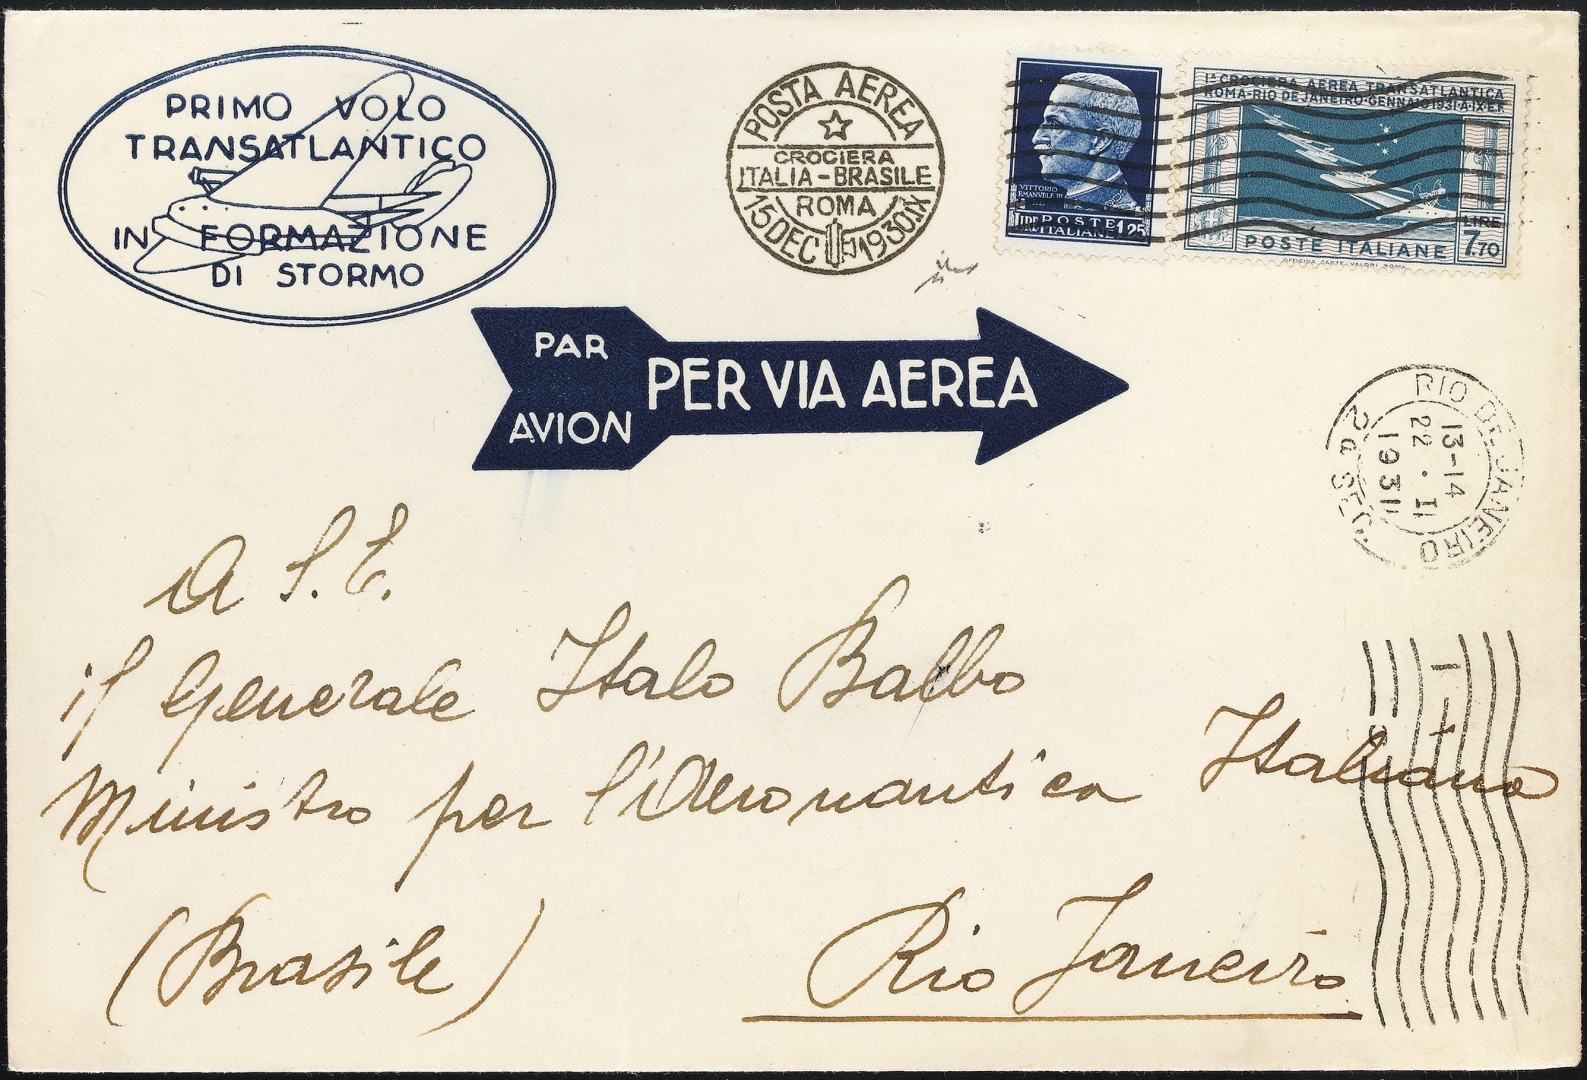 PRIMO VOLO
TRANSATLANTICO
IN FORMAZIONE
DI STORMO
POSTA AEREA
CROCIERA
ITALIA-BRASILE
ROMA
15 DEC 1930 IX
VITTORIO
EMANUELE III
LIRE POSTE 1,25
ITALIANE
Iª CROCIERA AEREA TRANSATLANTICA
ROMA-RIO DE JANEIRO-GENNAIO 1931-A·IX·E·F·
LIRE
7.70
POSTE ITALIANE
OFFICINA CARTE VALORI ROMA
PAR
AVION
PER VIA AEREA
RIO DE JANEIRO
13-14
22 · II
1931
2a SEC
A S. E.
il Generale Italo Balbo
Ministro per l'Aeronautica Italiana
Rio Janeiro
(Brasile)